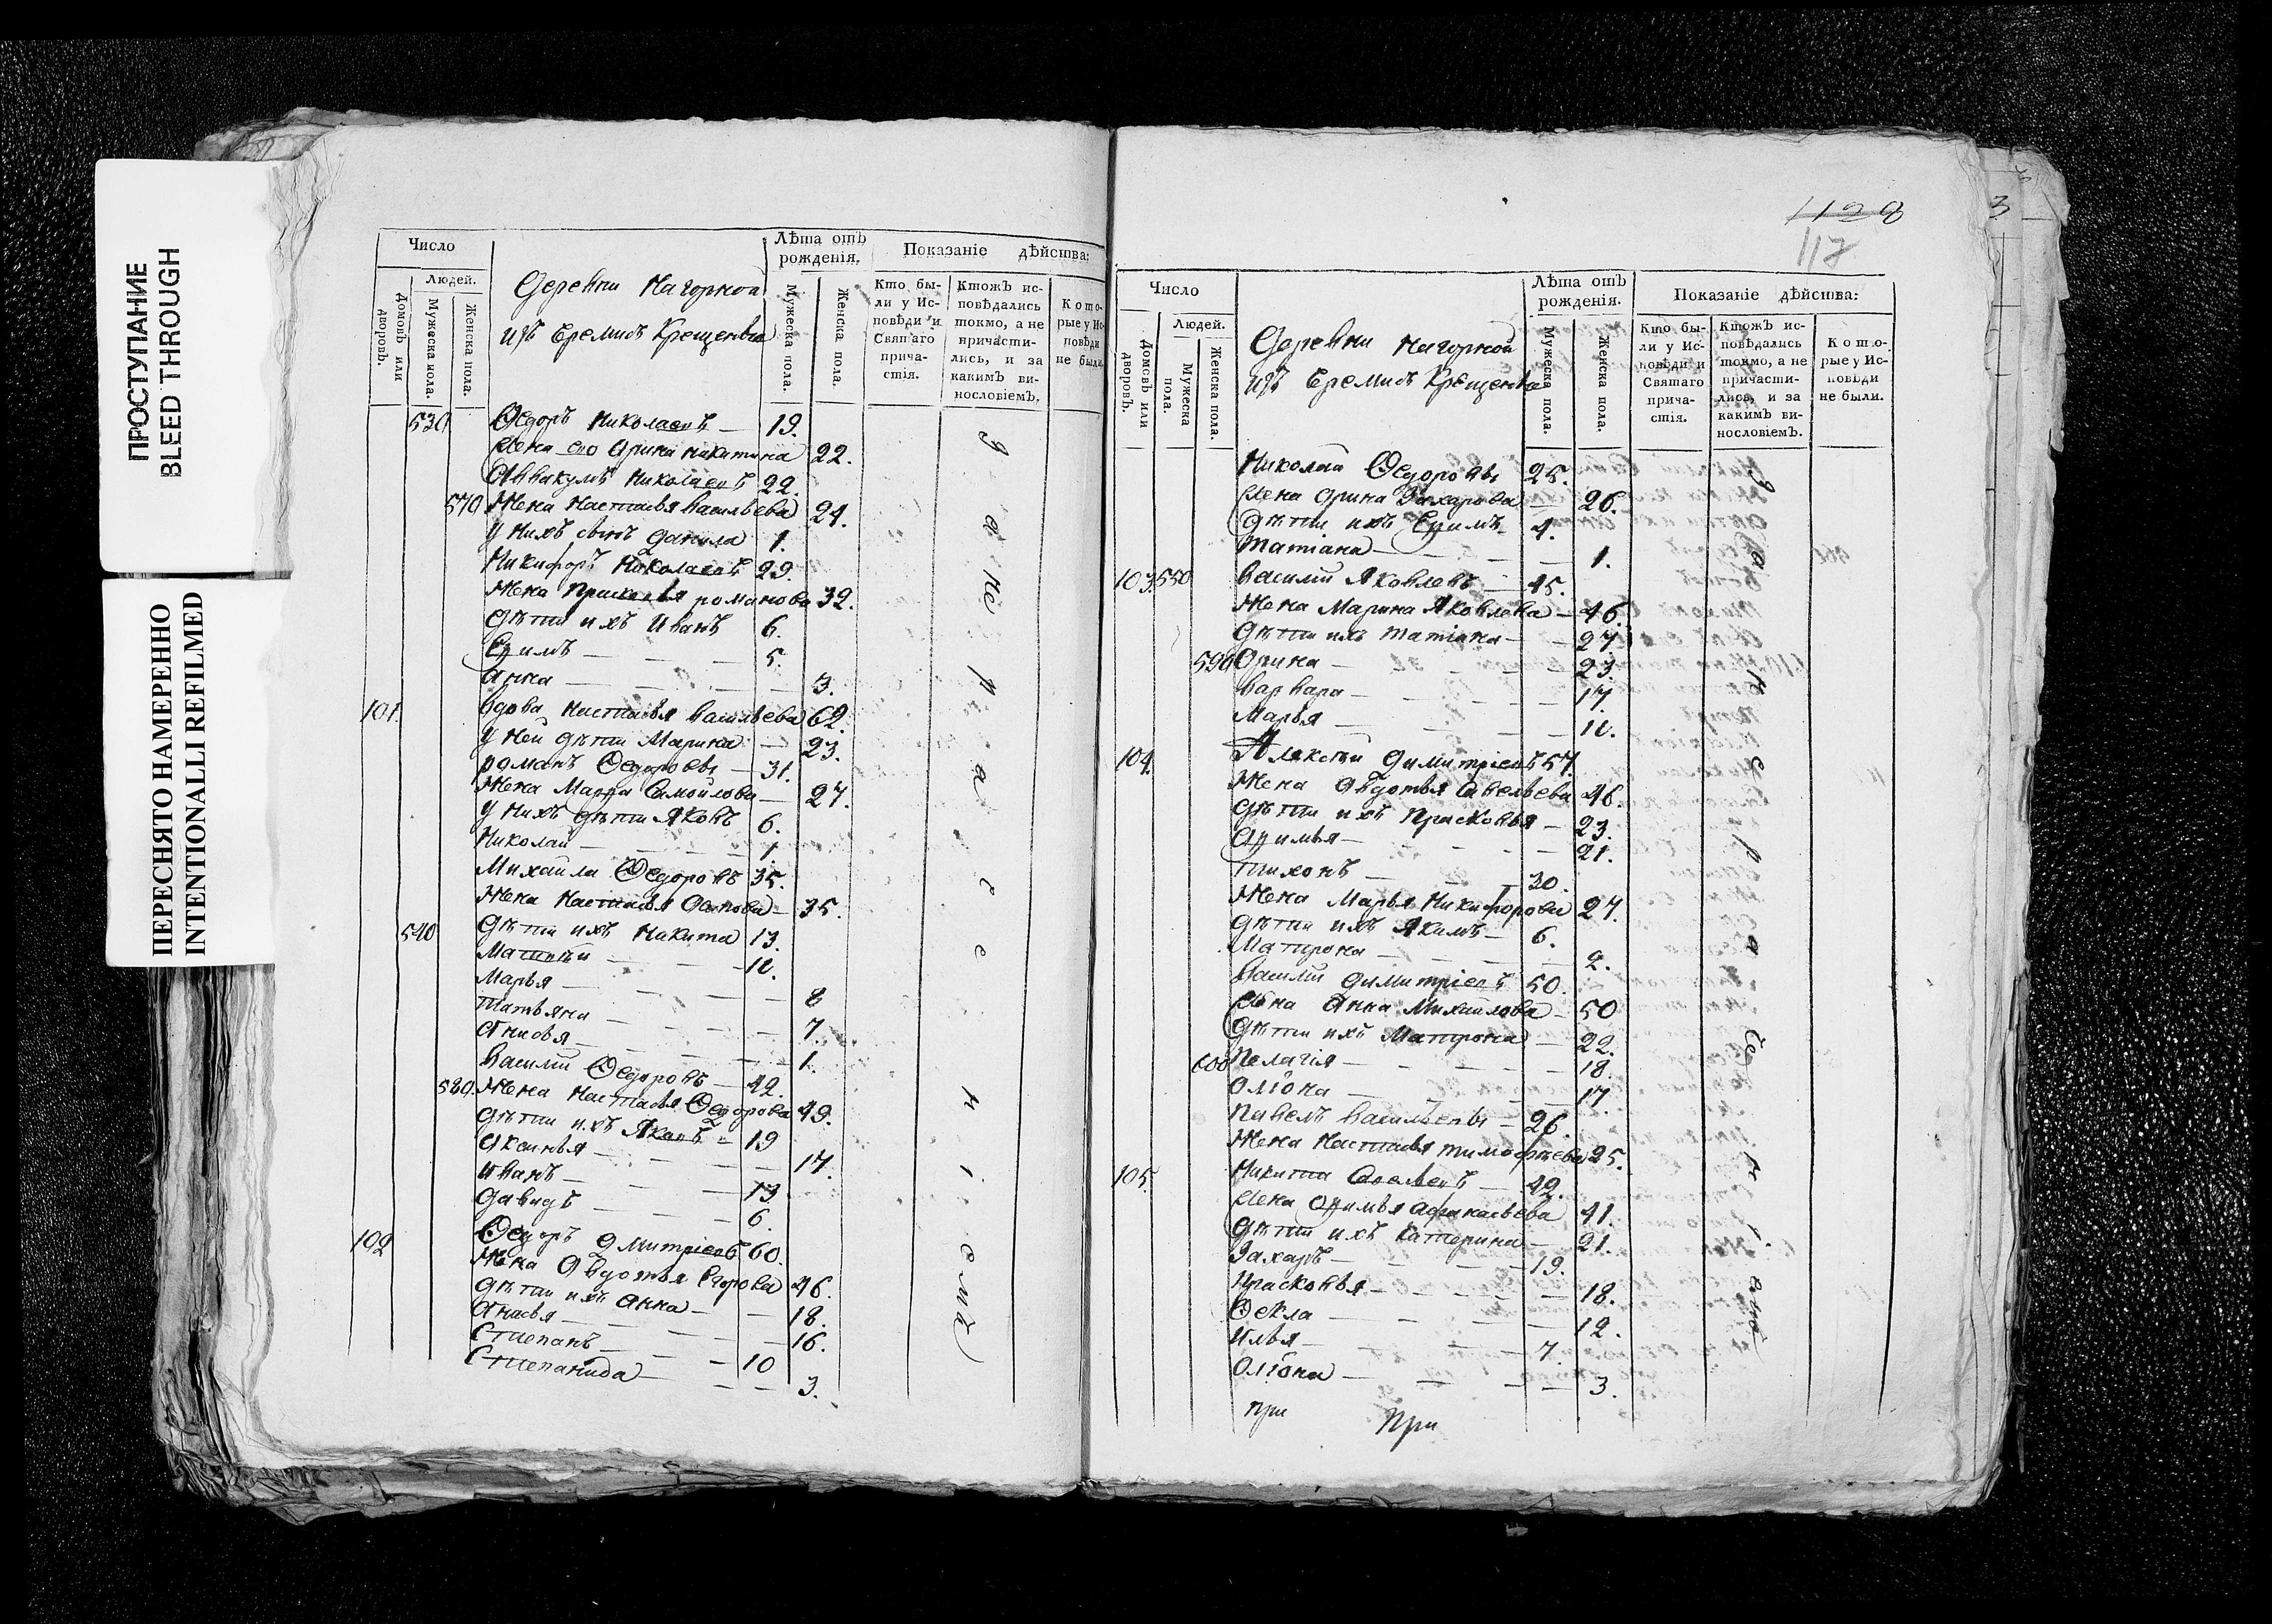 ПРОСТУПАНИЕ
BLEED THROUGH
ПЕРЕСНЯТО НАМЕРЕННО
INTENTIONALLI REFILMED
Число
Людей.
Домовъ или дворовъ.
Мужеска пола.
Женска пола.
Деревни Нагорной
изъ Еремисъ Крещены
Лѣта отъ рождения.
Мужеска пола.
Женска пола.
Показаніе дѣйства:
Кто бы-
ли у Ис-
повѣди и
Святаго
прича-
стія.
Ктожъ ис-
повѣдались
токмо, а не
причасти-
лись, и за
какимъ ви-
нословіемъ.
Кото-
рые у Ис-
повѣди
не были.
530 Ѳедоръ Николаевъ — 19.
Жена его Арина никитина 22.
Аввакумъ Николаевъ 22.
570 Жена Настасья васильева 24.
у нихъ сынъ данила 1.
Никифоръ Николаевъ 29.
Жена Прасковья романова 32.
дѣти ихъ Иванъ 6.
Ефимъ — — — 5.
Анна — — — 3.
101. вдова Настасья васильева 62.
у ней дѣти Марина — 23.
романъ Ѳедоровъ — 31.
Жена Марфа Самойлова — 27.
у нихъ дѣти Яковъ 6.
Николай — — — 1.
Михайла Ѳедоровъ 35.
Жена Настасья Осипова — 35.
540 дѣти ихъ Никита 13.
Матвѣй — — — 11.
Марья — — — 8
Татьяна — — — 7.
Анисья — — — 1.
василий Ѳедоровъ — 42.
580. Жена Настасья Ѳедорова 49.
дѣти ихъ Яковъ — 19
Аксинья — — — 17.
Иванъ — — — 13
давидъ — — — 6.
102 Ѳедоръ дмитриевъ 60.
Жена Авдотья Егорова 46.
дѣти ихъ Анна — — 18.
Анисья — — — 16.
Степанъ — — — 10
Степанида — — — 3.
за не р а с с м о т р
1128
117
3
Число
Людей.
Домовъ или дворовъ.
Мужеска пола.
Женска пола.
Деревни Нагорной
изъ Еремисъ Крещены
Лѣта отъ рожденія.
Мужеска пола.
Женска пола.
Показаніе дѣйства:
Кто бы-
ли у Ис-
повѣди и
Святаго
прича-
стія.
Ктожъ ис-
повѣдались
токмо, а не
причасти-
лись, и за
какимъ ви-
нословіемъ.
Кото-
рые у Ис-
повѣди
не были.
Николай Ѳедоровъ 25.
Жена Арина Захарова — 26.
дѣти ихъ Ефимъ 4.
Татіана — — — 1.
103. 550 василий Яковлевъ — 45.
Жена Марина Яковлева — 46.
дѣти ихъ Татіана — — 27
590 Орина — — — 23.
варвара — — — 17.
Марья — — — 11.
104. Алексѣй димитріевъ 57.
Жена Авдотья Савельева 46.
дѣти ихъ Прасковья — 23.
Афимья — — — 21.
Тихонъ — — 30.
Жена Марья Никифорова 27.
дѣти ихъ Якимъ — 6.
Матрона — — — 2.
василий димитріевъ 50.
Жена Анна Михайлова — 50
дѣти ихъ Матрона — 22.
600 Пелагія — — — 18.
Оліона — — — 17.
Павелъ васильевъ — 26.
Жена Настасья тимофѣева 25.
105. Никита Савельевъ — 42.
Жена Афимья Афанасьева 41.
дѣти ихъ Катерина — 21.
Захаръ — — — 19.
Прасковья — — — 18.
Ѳекла — — — 12.
Илья — — — 7.
Оліона — — — 3.
при
При